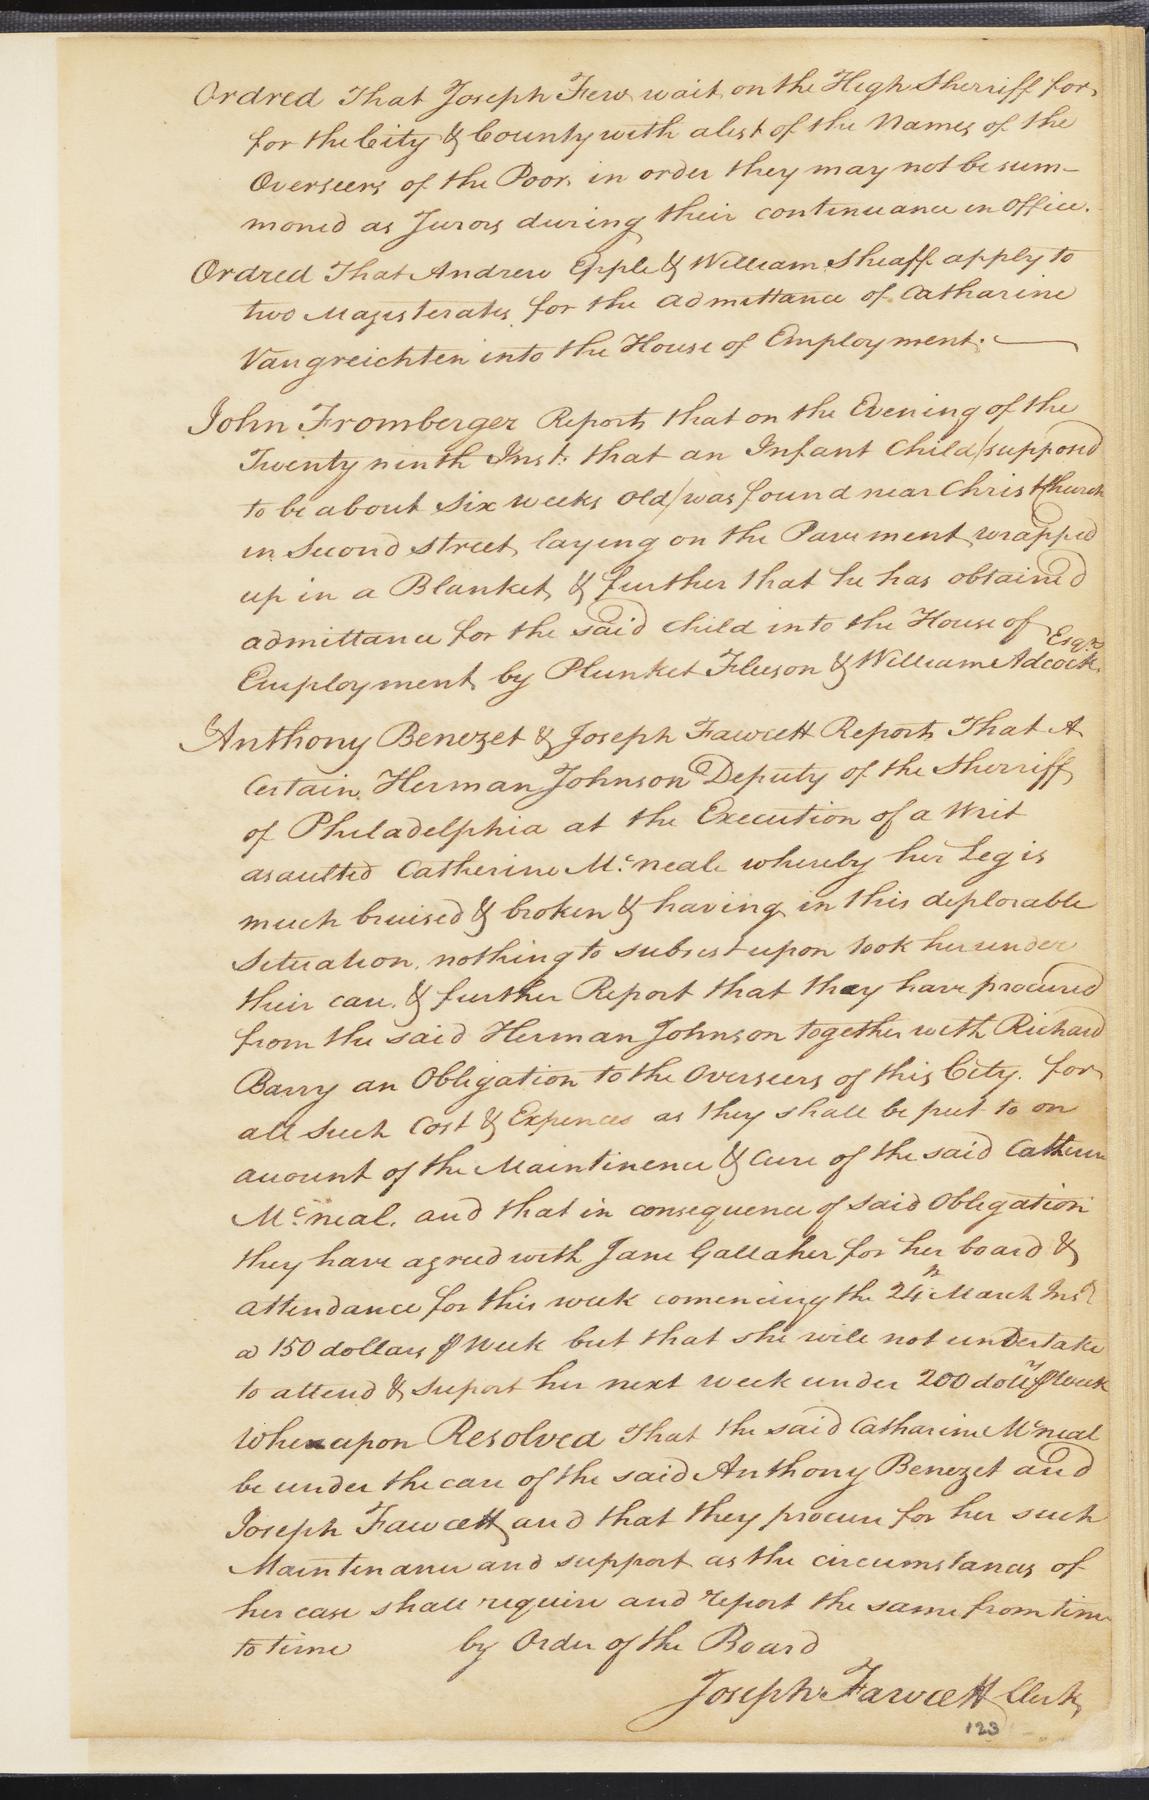 Ordred That Joseph Few wait on the High Sherriff for
for the City & County with a list of the Names of the
Overseers of the Poor, in order they may not be sum-
moned as Jurors during their continuance in Office.
Ordred That Andrew Epple & William Sheaff apply to
two Magisterates for the admittance of Catharine
Vangreichten into the House of Employment.
John Fromberger Reports that on the Evening of the
Twenty ninth Inst: that an Infant Child /supposed
to be about Six weeks old/ was found near Christ Church
in Second Street, laying on the Pavement, wrapped
up in a Blanket, & further that he has obtained
admittance for the said child into the House of
Employment, by Plunket Fleeson & William Adcock Esqrs
Anthony Benezet & Joseph Fawcett Reports That A
Certain Herman Johnson Deputy of the Sherriff
of Philadelphia at the Execution of a Writ
asaulted Catherine Mc.neale whereby her Leg is
much bruised & broken & having in this deplorable
Situation, nothing to subsist upon took her under
their care. & further Report that they have procured
from the said Herman Johnson together with Richard
Barry an Obligation to the Overseers of this City. for
all Such Cost & Expences as they shall be put to on
account of the Maintinence & Cure of the said Catherine
Mc.neal. and that in consequence of Said Obligation
they have agreed with Jane Gallaher for her board &
attendance for this week comencing the 24th March Inst
a 150 dollars ⅌ Week but that she will not undertake
to attend & suport her next week under 200 dollrs ⅌ Week
Whereupon Resolved That the said Catharine Mcneal
be under the care of the said Anthony Benezet and
Joseph Fawcett, and that they procure for her such
Maintenance and support as the circumstances of
her case shall require and report the same from time
to time by Order of the Board
Joseph Fawcett Clerk
123